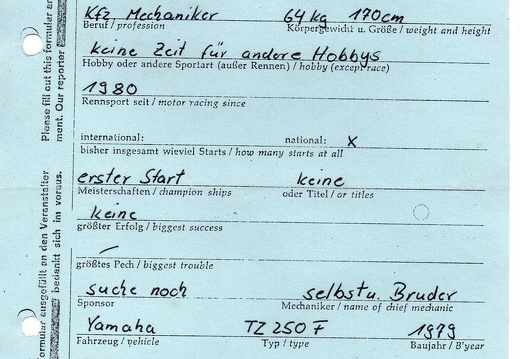 Kfz Mechaniker 64 kg 170cm
Beruf / profession Körpergewicht u. Größe / weight and height
keine Zeit für andere Hobbys
Hobby oder andere Sportart (außer Rennen) / hobby (except race)
1980
Rennsport seit / motor racing since
international: national: x
bisher insgesamt wieviel Starts / how many starts at all
erster Start keine
Meisterschaften / champion ships oder Titel / or titles
keine
größter Erfolg / biggest success
—
größtes Pech / biggest trouble
suche noch selbst u. Bruder
Sponsor Mechaniker / name of chief mechanic
Yamaha TZ 250 F 1979
Fahrzeug / vehicle Typ / type Baujahr / B'year
Please fill out this formular
ment. Our reporter
formular ausgefüllt an den Veranstalter
bedankt sich im voraus.